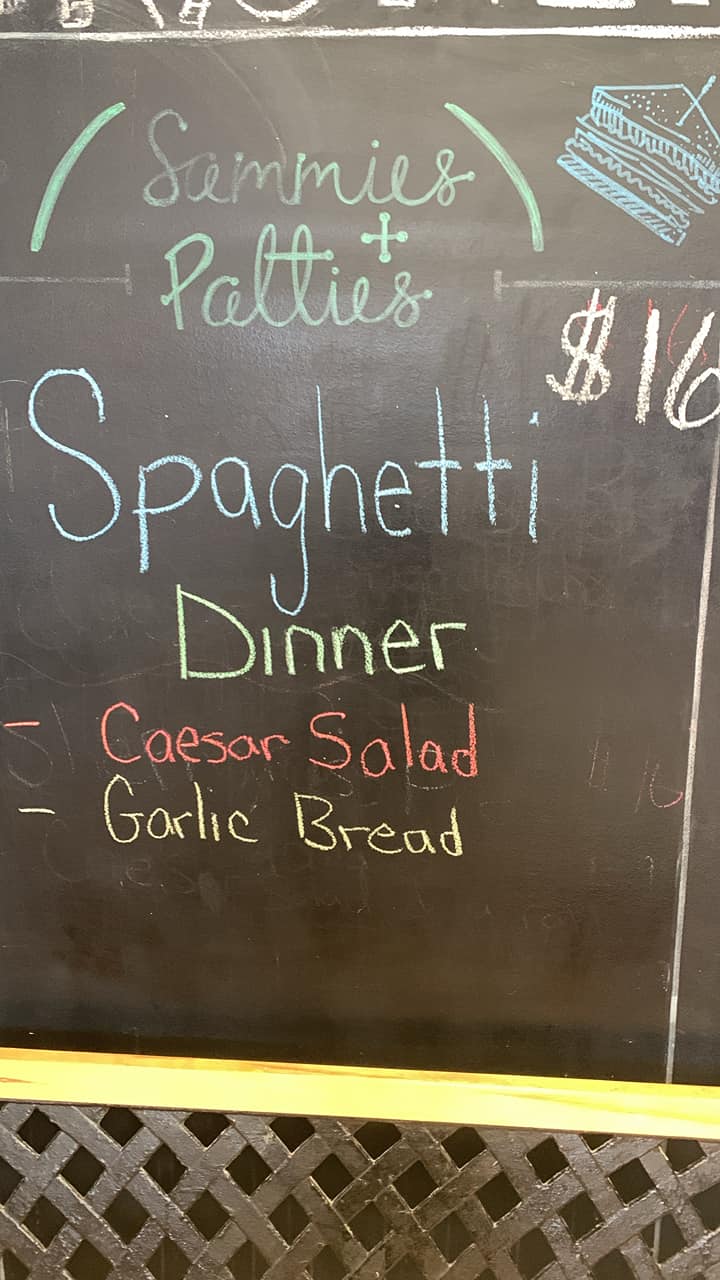 (Sammies
+
Patties)
$16
Spaghetti
Dinner
- Caesar Salad
- Garlic Bread